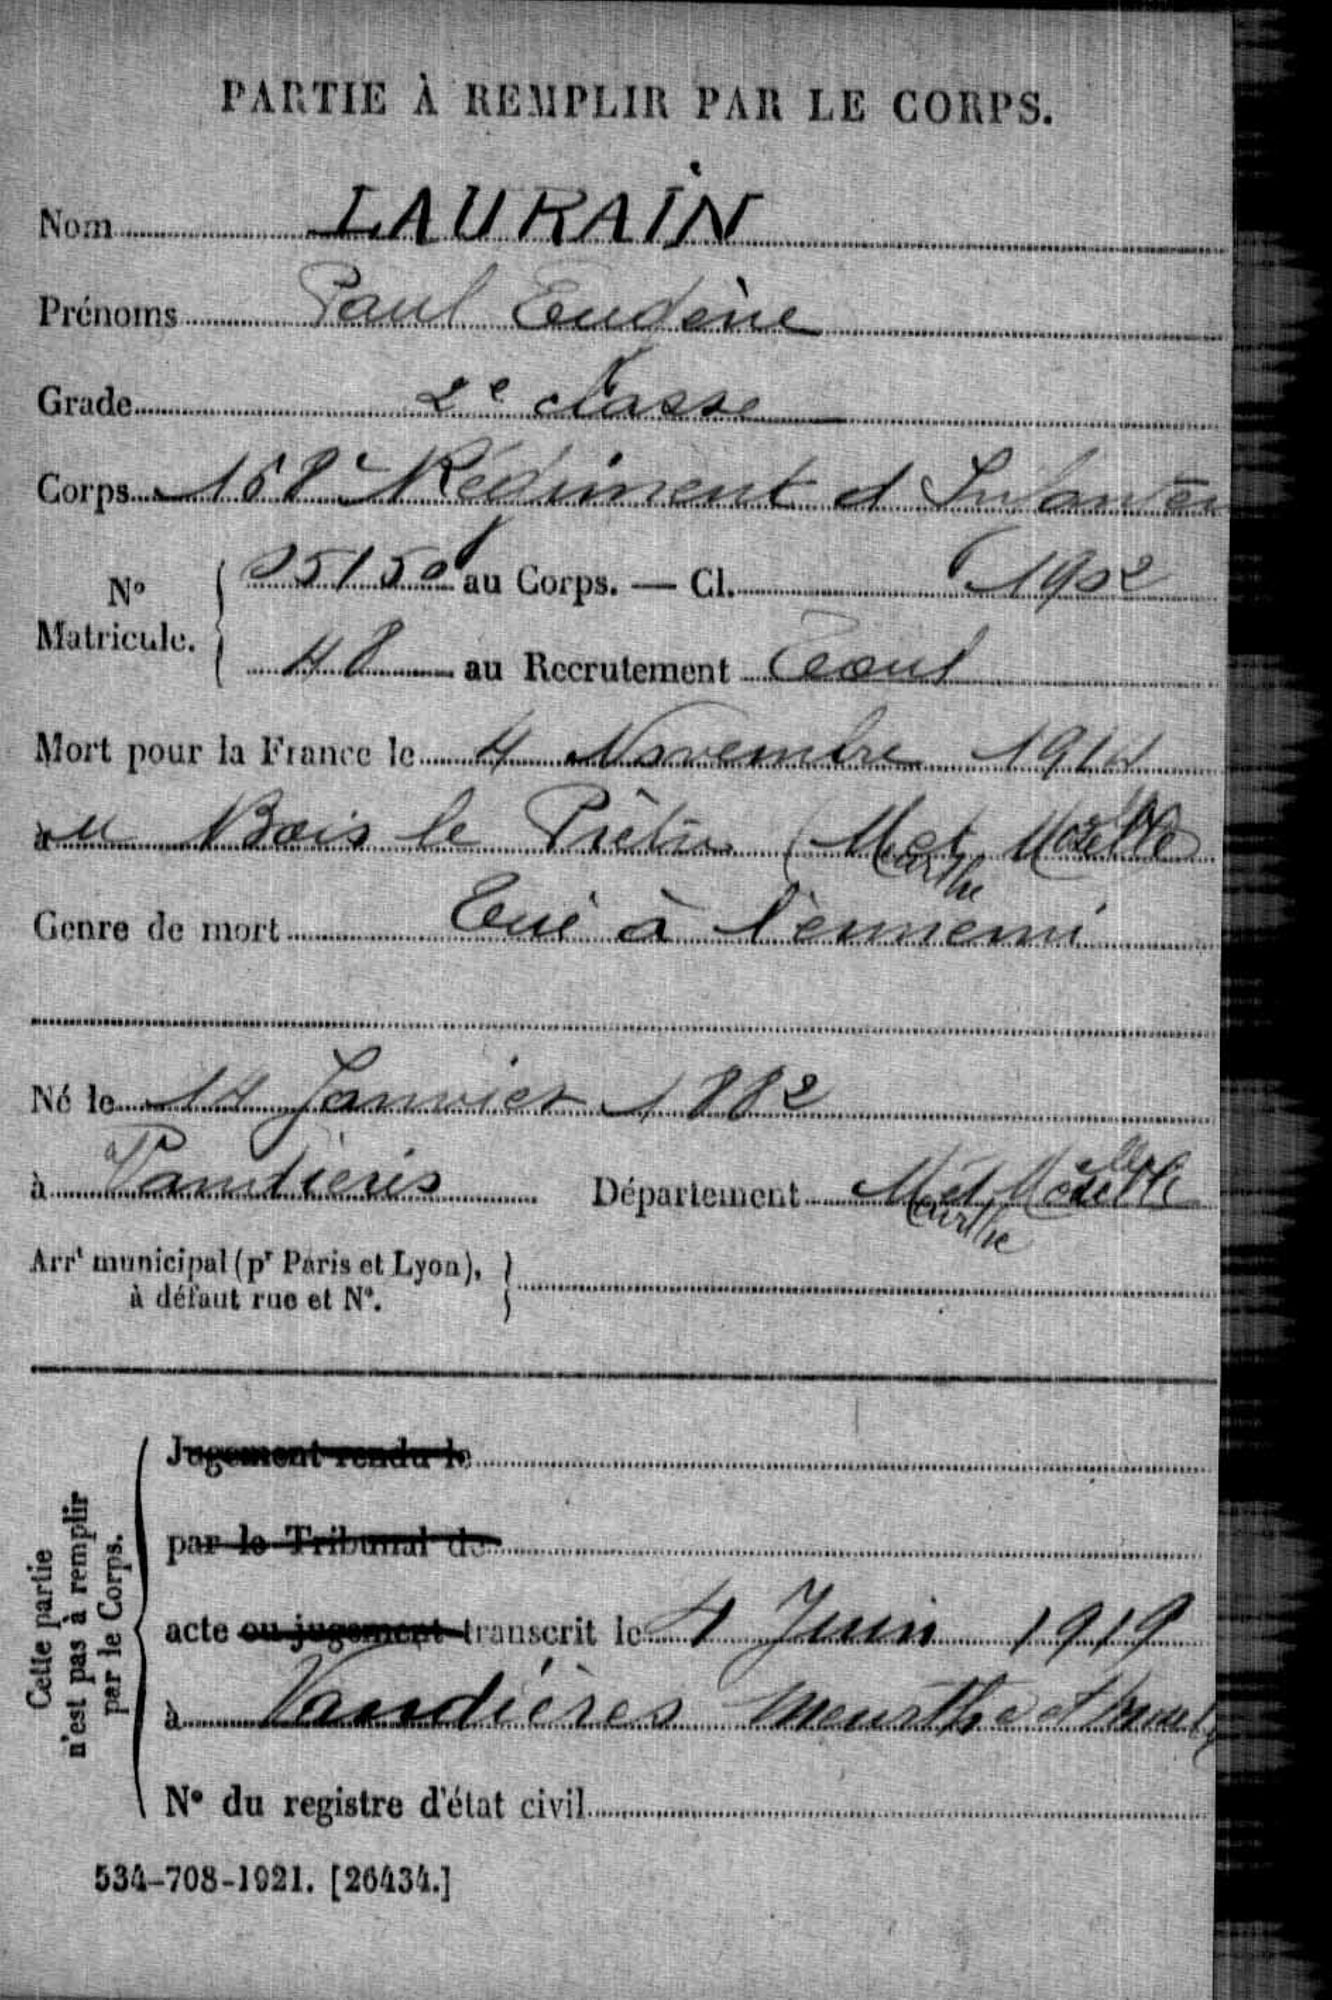 PARTIE À REMPLIR PAR LE CORPS.
Nom LAURAIN
Prénoms Paul Eugène
Grade 2e classe
Corps 168e Régiment d'Infanterie
N° Matricule. 05150 au Corps. — Cl. 1902
48 au Recrutement Toul
Mort pour la France le 4 Novembre 1914
au Bois le Prêtre (Meurthe et Moselle)
Genre de mort Tué à l'ennemi
Né le 14 Janvier 1882
à Vandières Département Meurthe et Moselle
Arrt municipal (pr Paris et Lyon),
à défaut rue et N°.
Cette partie
n'est pas à remplir
par le Corps.
Jugement rendu le
par le Tribunal de
acte ou jugement transcrit le 4 Juin 1919
à Vandières Meurthe et Moselle
N° du registre d'état civil
534-708-1921. [26434.]